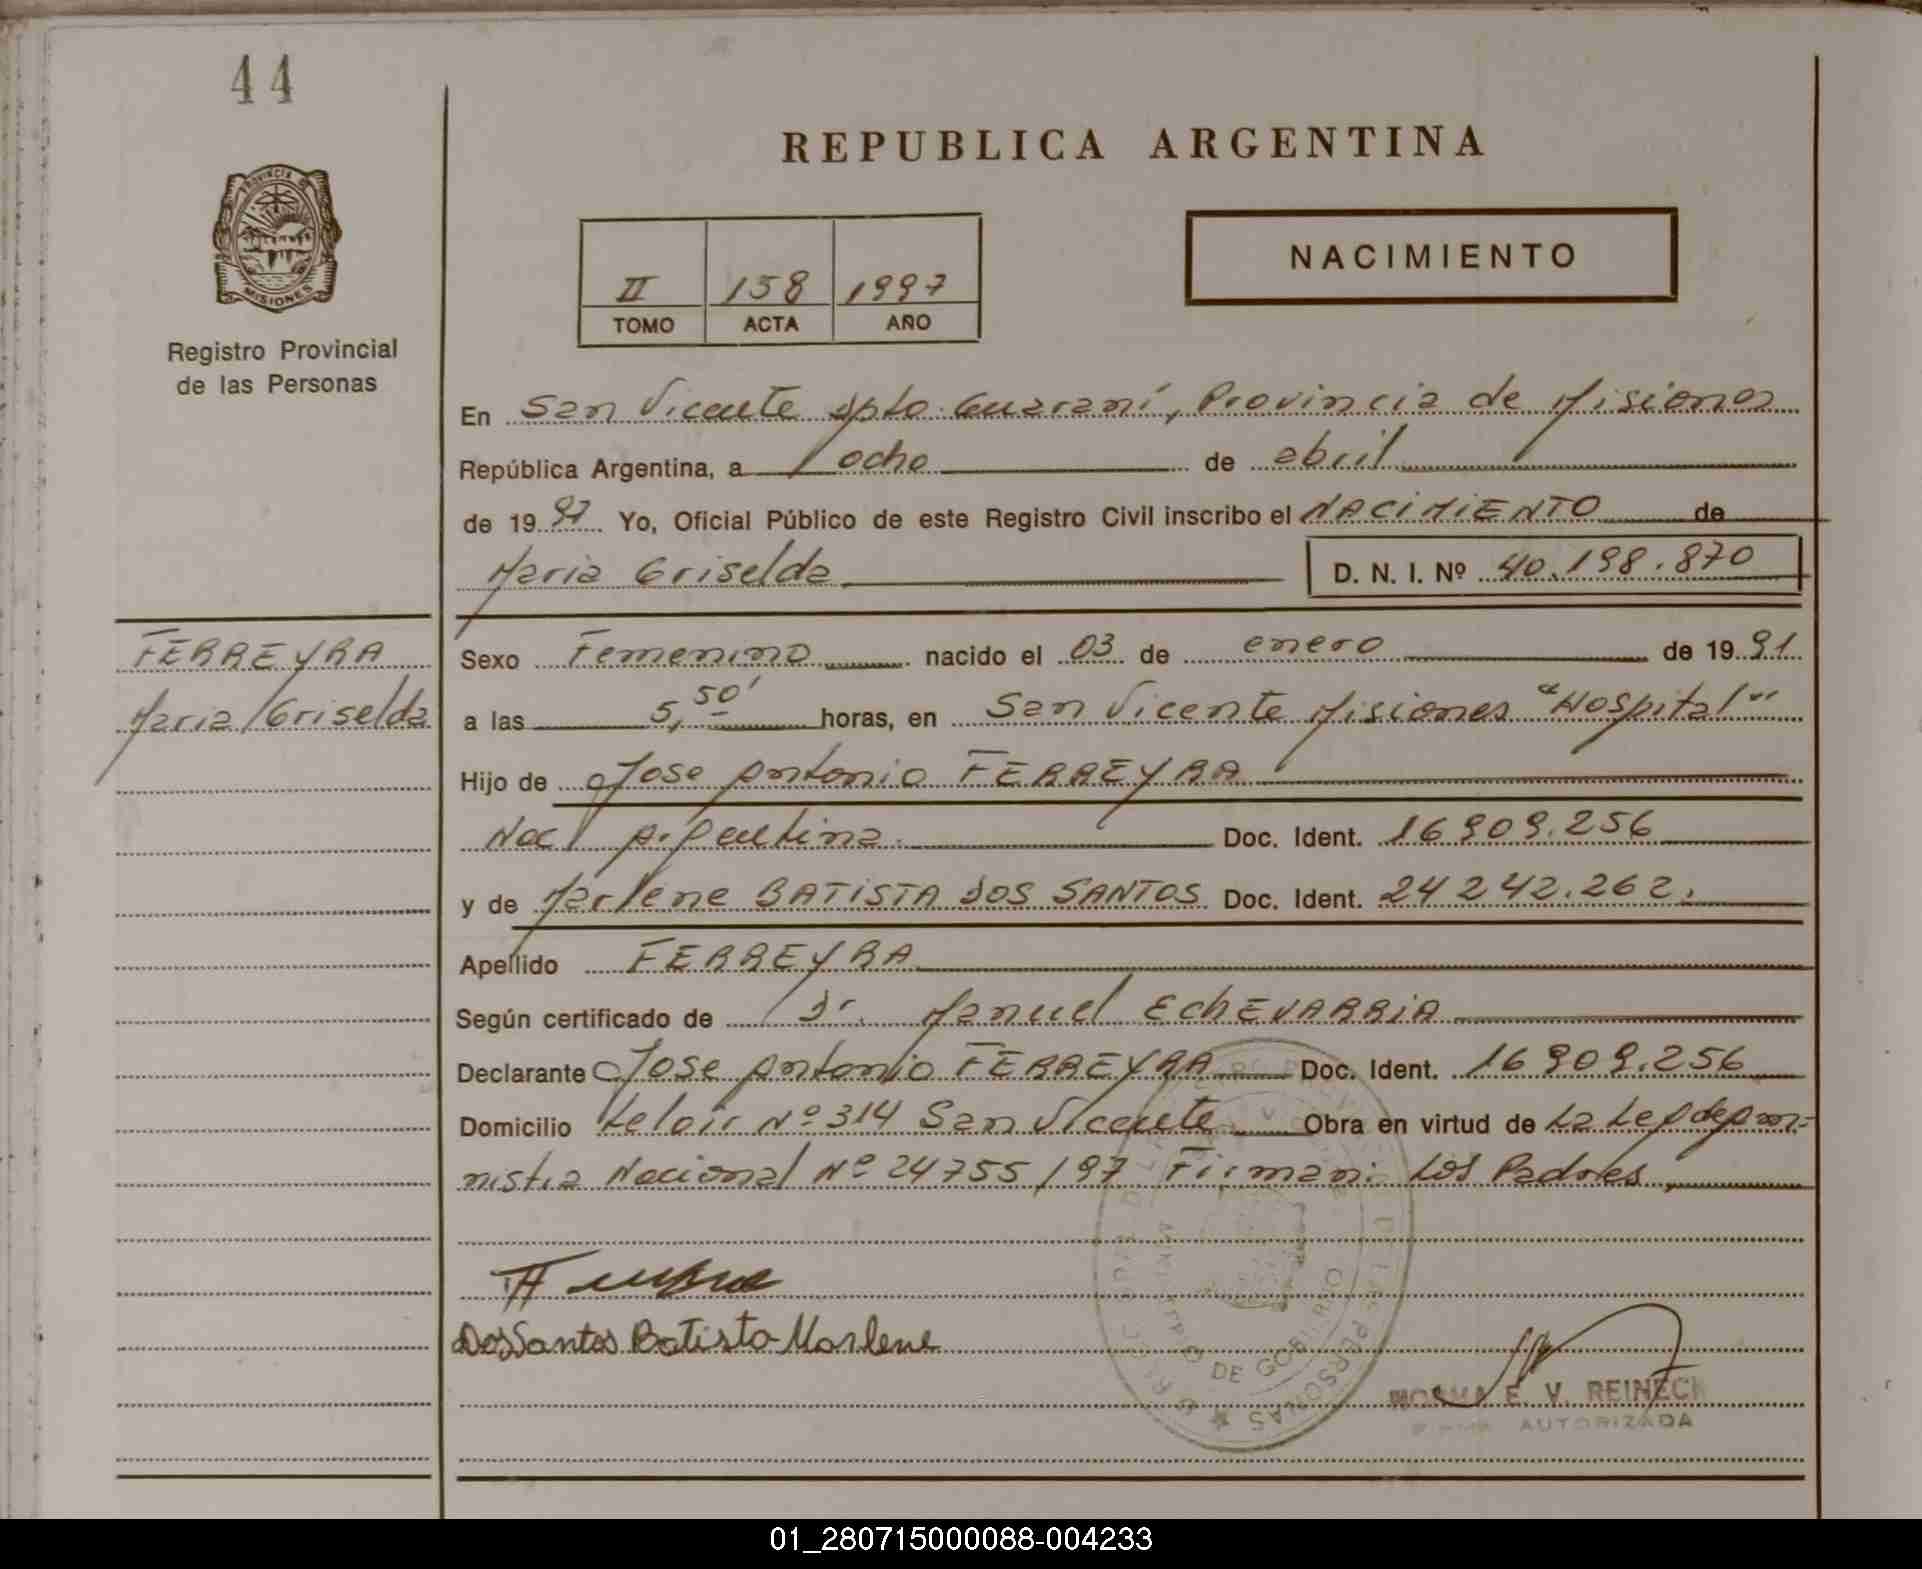 44
REPUBLICA ARGENTINA
PROVINCIA DE
MISIONES
Registro Provincial
de las Personas
NACIMIENTO
II 158 1997
TOMO ACTA AÑO
En San Vicente dpto. Guaraní, Provincia de Misiones
República Argentina, a ocho de abril
de 1997 Yo, Oficial Público de este Registro Civil inscribo el NACIMIENTO de
Maria Griselda D. N. I. Nº 40.198.870
FERREYRA
Maria Griselda
Sexo Femenino nacido el 03 de enero de 1991
a las 5,50' horas, en San Vicente Misiones "Hospital"
Hijo de Jose Antonio FERREYRA
Nac Argentina. Doc. Ident. 16909.256
y de Marlene BATISTA DOS SANTOS Doc. Ident. 24242.262.
Apellido FERREYRA
Según certificado de Dr. Manuel EchEVARRiA
Declarante Jose Antonio FERREYRA Doc. Ident. 16909.256
Domicilio Leloir Nº 314 San Vicente Obra en virtud de La Ley de Am-
nistia Nacional Nº 24755/97 Firman: Los Padres,
DosSantos Batista Marlene
NORMA E. V. REINECK
FIRMA AUTORIZADA
01_280715000088-004233